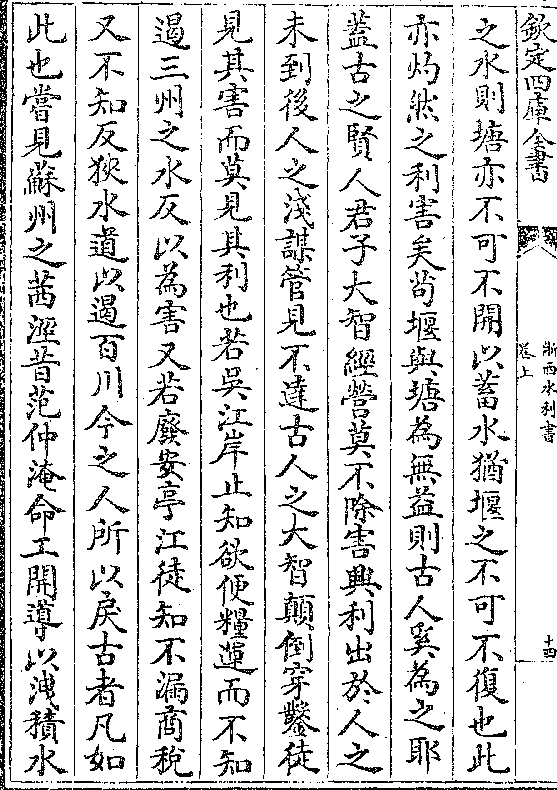 欽定四庫全書
浙西水利書
卷上
十四
之水則塘亦不可不開以蓄水猶堰之不可不復也此
亦灼然之利害矣茍堰與塘為無益則古人奚為之耶
葢古之賢人君子大智經營莫不除害興利出於人之
未到後人之淺謀管見不達古人之大智顛倒穿鑿徒
見其害而莫見其利也若吳江岸止知欲便糧運而不知
遏三州之水反以為害又若廢安亭江徒知不漏商稅
又不知反狹水道以遏百川今之人所以戾古者凡如
此也嘗見蘇州之茜涇昔范仲淹命工開導以洩積水